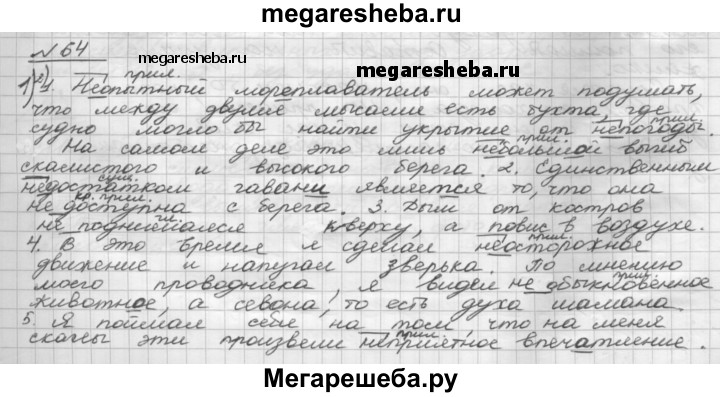 megaresheba.ru
№ 64
прил.
megaresheba.ru
megaresheba.ru
1) 1. Неопытный мореплаватель может подумать,
что между двумя мысами есть бухта, где
судно могло бы найти укрытие от непогоды.
прил.
На самом деле это лишь небольшой выгиб
скалистого и высокого берега. 2. Единственным
сущ.
недостатком гавани является то, что она
кр. прил.
не доступна с берега. 3. Дым от костров
гл.
не поднимался кверху, а повис в воздухе.
прил.
4. В это время я сделал неосторожное
движение и напугал зверька. По мнению
прил.
моего проводника, я видел не обыкновенное
животное, а севона, то есть духа шамана.
5. Я поймал себя на том, что на меня
прил.
скалы эти произвели неприятное впечатление.
Мегарешеба.ру